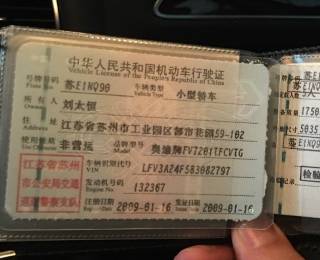 中华人民共和国机动车行驶证
Vehicle License of the People's Republic of China
号牌号码 苏E1NQ90 车辆类型 小型轿车
Plate No. Vehicle Type
所有人 刘太恒
Owner
住址 江苏省苏州市工业园区都市花园59-102
Address
使用性质 非营运 品牌型号 奥迪牌FV7201TFCVTG
Use Character Model
江苏省苏州
市公安局交通
巡逻警察支队
车辆识别代号 LFV3A24F583082797
VIN
发动机号码 132367
Engine No.
注册日期 2009-01-16 发证日期 2009-01-16
Register Date Issue Date
号牌号码 苏E1NQ